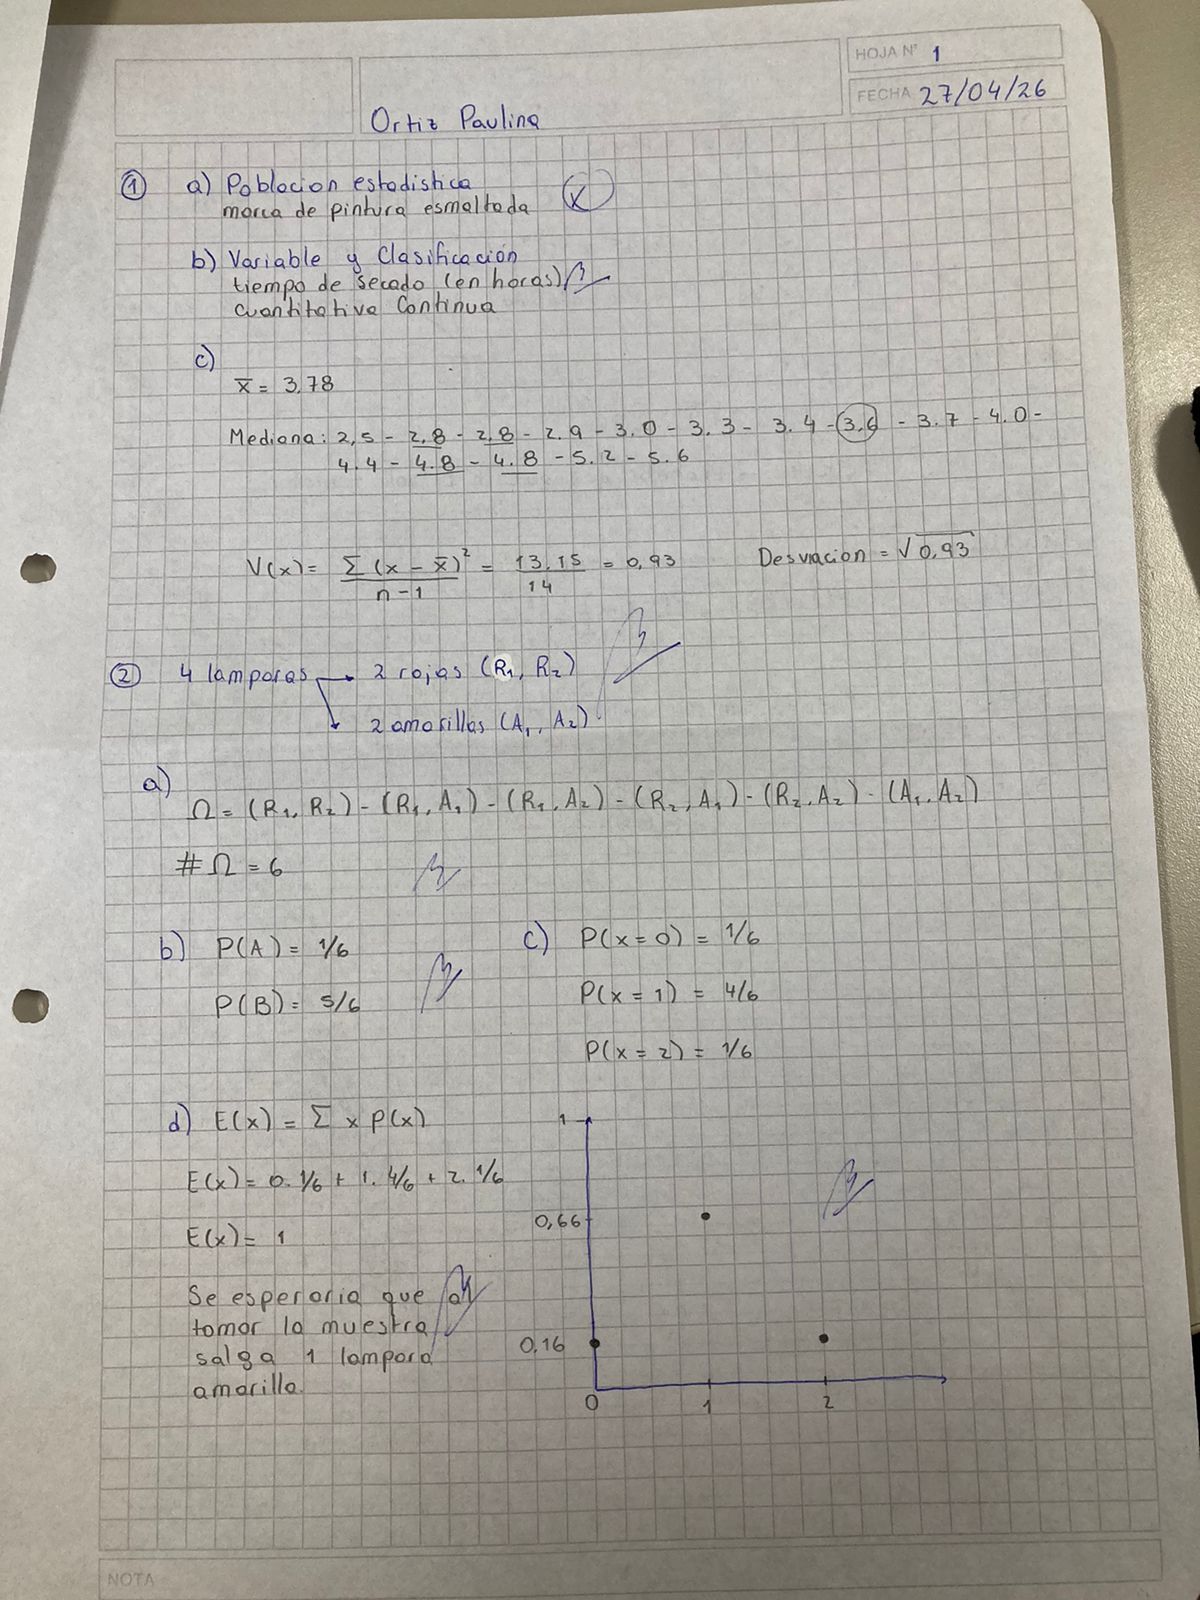 HOJA N° 1
FECHA 27/04/26
Ortiz Paulina
① a) Poblacion estadistica
marca de pintura esmaltada
b) Variable y Clasificación
tiempo de secado (en horas)
cuantitativa Continua
c)
x̄ = 3.78
Mediana: 2,5 - 2.8 - 2.8 - 2.9 - 3.0 - 3.3 - 3.4 - 3.6 - 3.7 - 4.0 -
4.4 - 4.8 - 4.8 - 5.2 - 5.6
V(x) = Σ(x - x̄)² / n - 1 = 13,15 / 14 = 0,93 Desviacion = √0,93
② 4 lamparas → 2 rojas (R₁, R₂)
→ 2 amarillas (A₁, A₂)
a)
Ω = (R₁, R₂) - (R₁, A₁) - (R₁, A₂) - (R₂, A₁) - (R₂, A₂) - (A₁, A₂)
# Ω = 6
b) P(A) = 1/6
P(B) = 5/6
c) P(x = 0) = 1/6
P(x = 1) = 4/6
P(x = 2) = 1/6
d) E(x) = Σ x P(x)
E(x) = 0. 1/6 + 1. 4/6 + 2. 1/6
E(x) = 1
Se esperaria que al
tomar la muestra
salga 1 lampara
amarilla.
1
0,66
0,16
0 1 2
NOTA